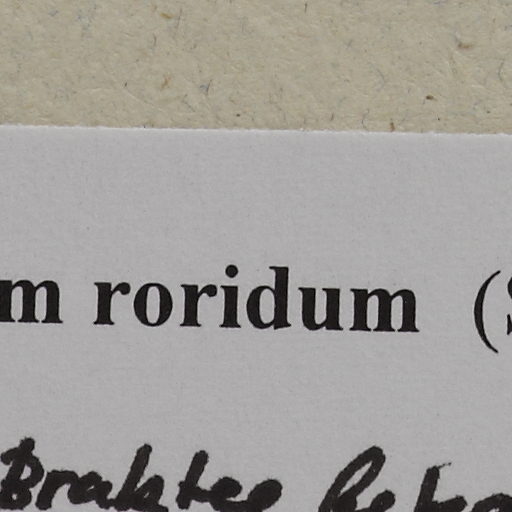 m roridum (S
Braktee